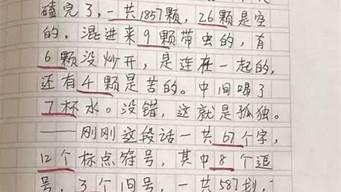 磕完了,一共1857颗,26颗是空
的,混进来9颗带虫的,有
6颗没炒开,是连在一起的,
还有4颗是苦的。中间喝了
7杯水。没错,这就是孤独。
——刚刚这段话一共67个字,
12个标点符号,其中8个逗
号,3个句号,一共587划,